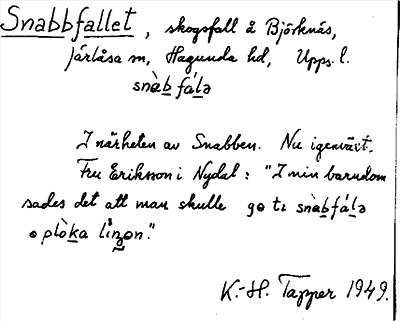 Snabbfallet, skogsfall å Björknäs,
Järlåsa sn, Hagunda hd, Upps. l.
snàb fálə
I närheten av Snabben. Nu igenväxt.
Fru Eriksson i Nydal: "I min barndom
sades det att man skulle go tı snàbfálə
o plòka lı̊ŋon."
K.-H. Tapper 1949.